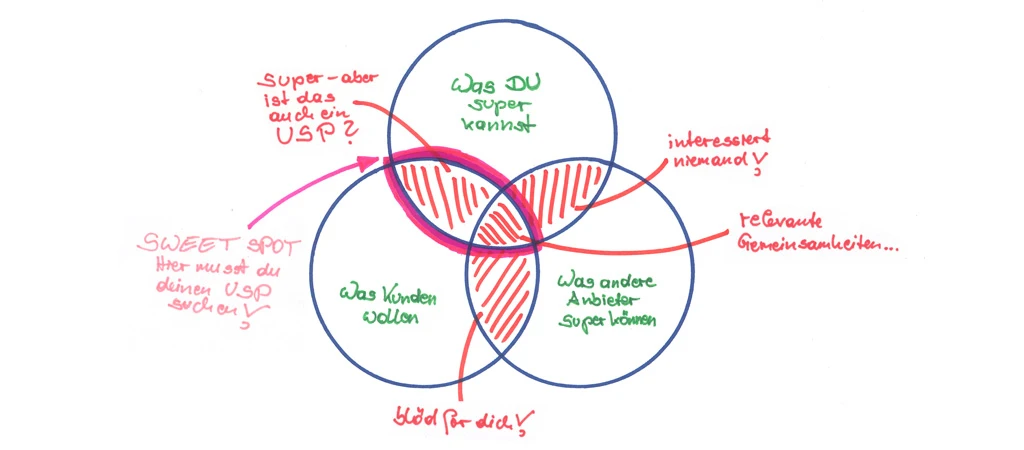 Super - aber
ist das
auch ein
USP?
Was DU
super
kannst
interessiert
niemand!
relevante
Gemeinsamkeiten...
SWEET SPOT
Hier musst du
deinen USP
suchen!
Was Kunden
wollen
Was andere
Anbieter
super können
blöd für dich!